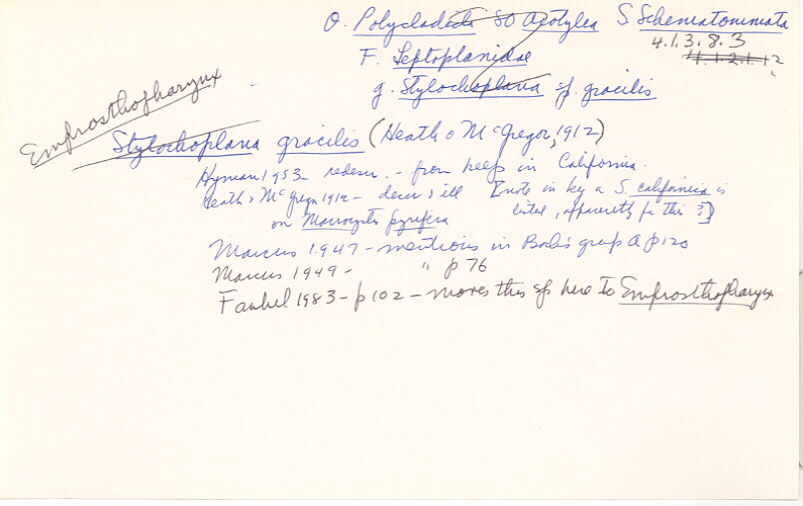 O. Polycladida SO Acotylea S. Schematommata
4.1.3.8.3
4.1.2.1.12
F. Leptoplanidae
g. Stylochoplana sp. gracilis
Emprosthopharynx
Stylochoplana gracilis (Heath & McGregor, 1912)
Hyman 1953 - redescr. - from kelp in California.
Heath & McGregor 1912 - descr & ill [note in key a S. californica is
on Macrocystis pyrifera listed, apparently for this ?]
Marcus 1947 - mentions in Bock's group A p 120
Marcus 1949 - " p 76
Faubel 1983 - p 102 - moves this sp here to Emprosthopharynx